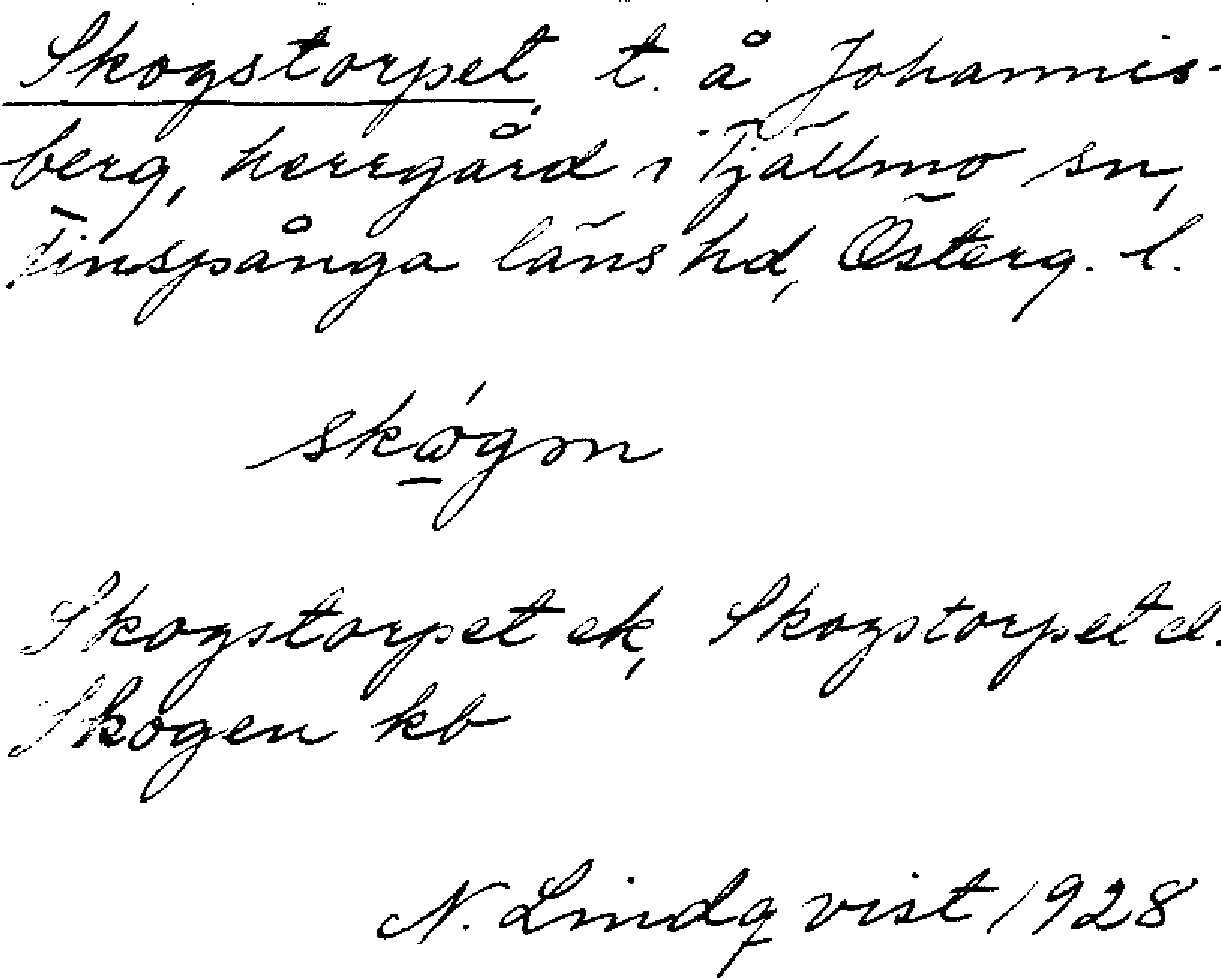 Skogstorpet, t. å Johannis-
berg, herrgård i Tjällmo sn,
Finspånga läns hd, Österg. l.
skógən
Skogstorpet ek, Skogstorpet el.
Skogen kb
N. Lindqvist 1928